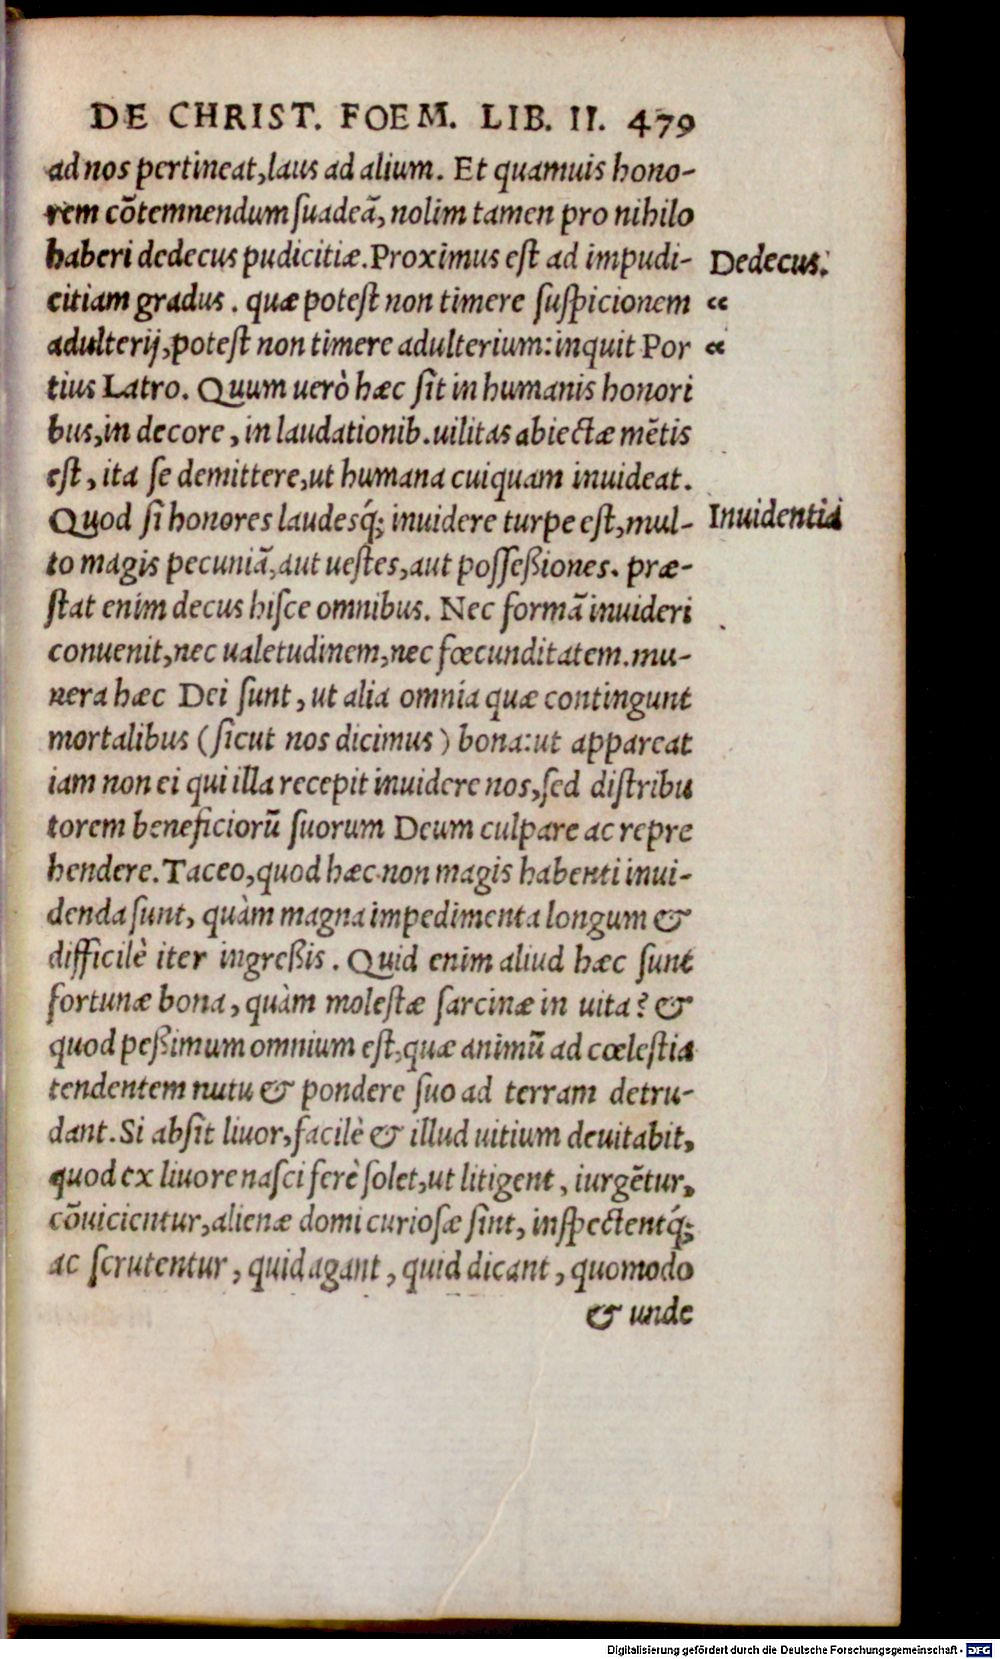 DE CHRIST. FOEM. LIB. II. 479
ad nos pertineat, laus ad alium. Et quamuis hono-
rem cõtemnendum suadeã, nolim tamen pro nihilo
haberi dedecus pudicitiæ. Proximus est ad impudi-
Dedecus.
citiam gradus. quæ potest non timere suspicionem
“
adulterij, potest non timere adulterium: inquit Por
“
tius Latro. Quum uerò hæc sit in humanis honori
bus, in decore, in laudationib. uilitas abiectæ mẽtis
est, ita se demittere, ut humana cuiquam inuideat.
Quod si honores laudesq́; inuidere turpe est, mul-
Inuidentia
to magis pecuniã, aut uestes, aut posseßiones. præ-
stat enim decus hisce omnibus. Nec formã inuideri
conuenit, nec ualetudinem, nec fœcunditatem. mu-
nera hæc Dei sunt, ut alia omnia quæ contingunt
mortalibus (sicut nos dicimus) bona: ut appareat
iam non ei qui illa recepit inuidere nos, sed distribu
torem beneficiorũ suorum Deum culpare ac repre
hendere. Taceo, quod hæc non magis habenti inui-
denda sunt, quàm magna impedimenta longum &
difficilè iter ingreßis. Quid enim aliud hæc sunt
fortunæ bona, quàm molestæ sarcinæ in uita? &
quod peßimum omnium est, quæ animũ ad cœlestia
tendentem nutu & pondere suo ad terram detru-
dant. Si absit liuor, facilè & illud uitium deuitabit,
quod ex liuore nasci ferè solet, ut litigent, iurgẽtur,
cõuicientur, alienæ domi curiosæ sint, inspectentq́;
ac scrutentur, quid agant, quid dicant, quomodo
& unde
Digitalisierung gefördert durch die Deutsche Forschungsgemeinschaft - DFG